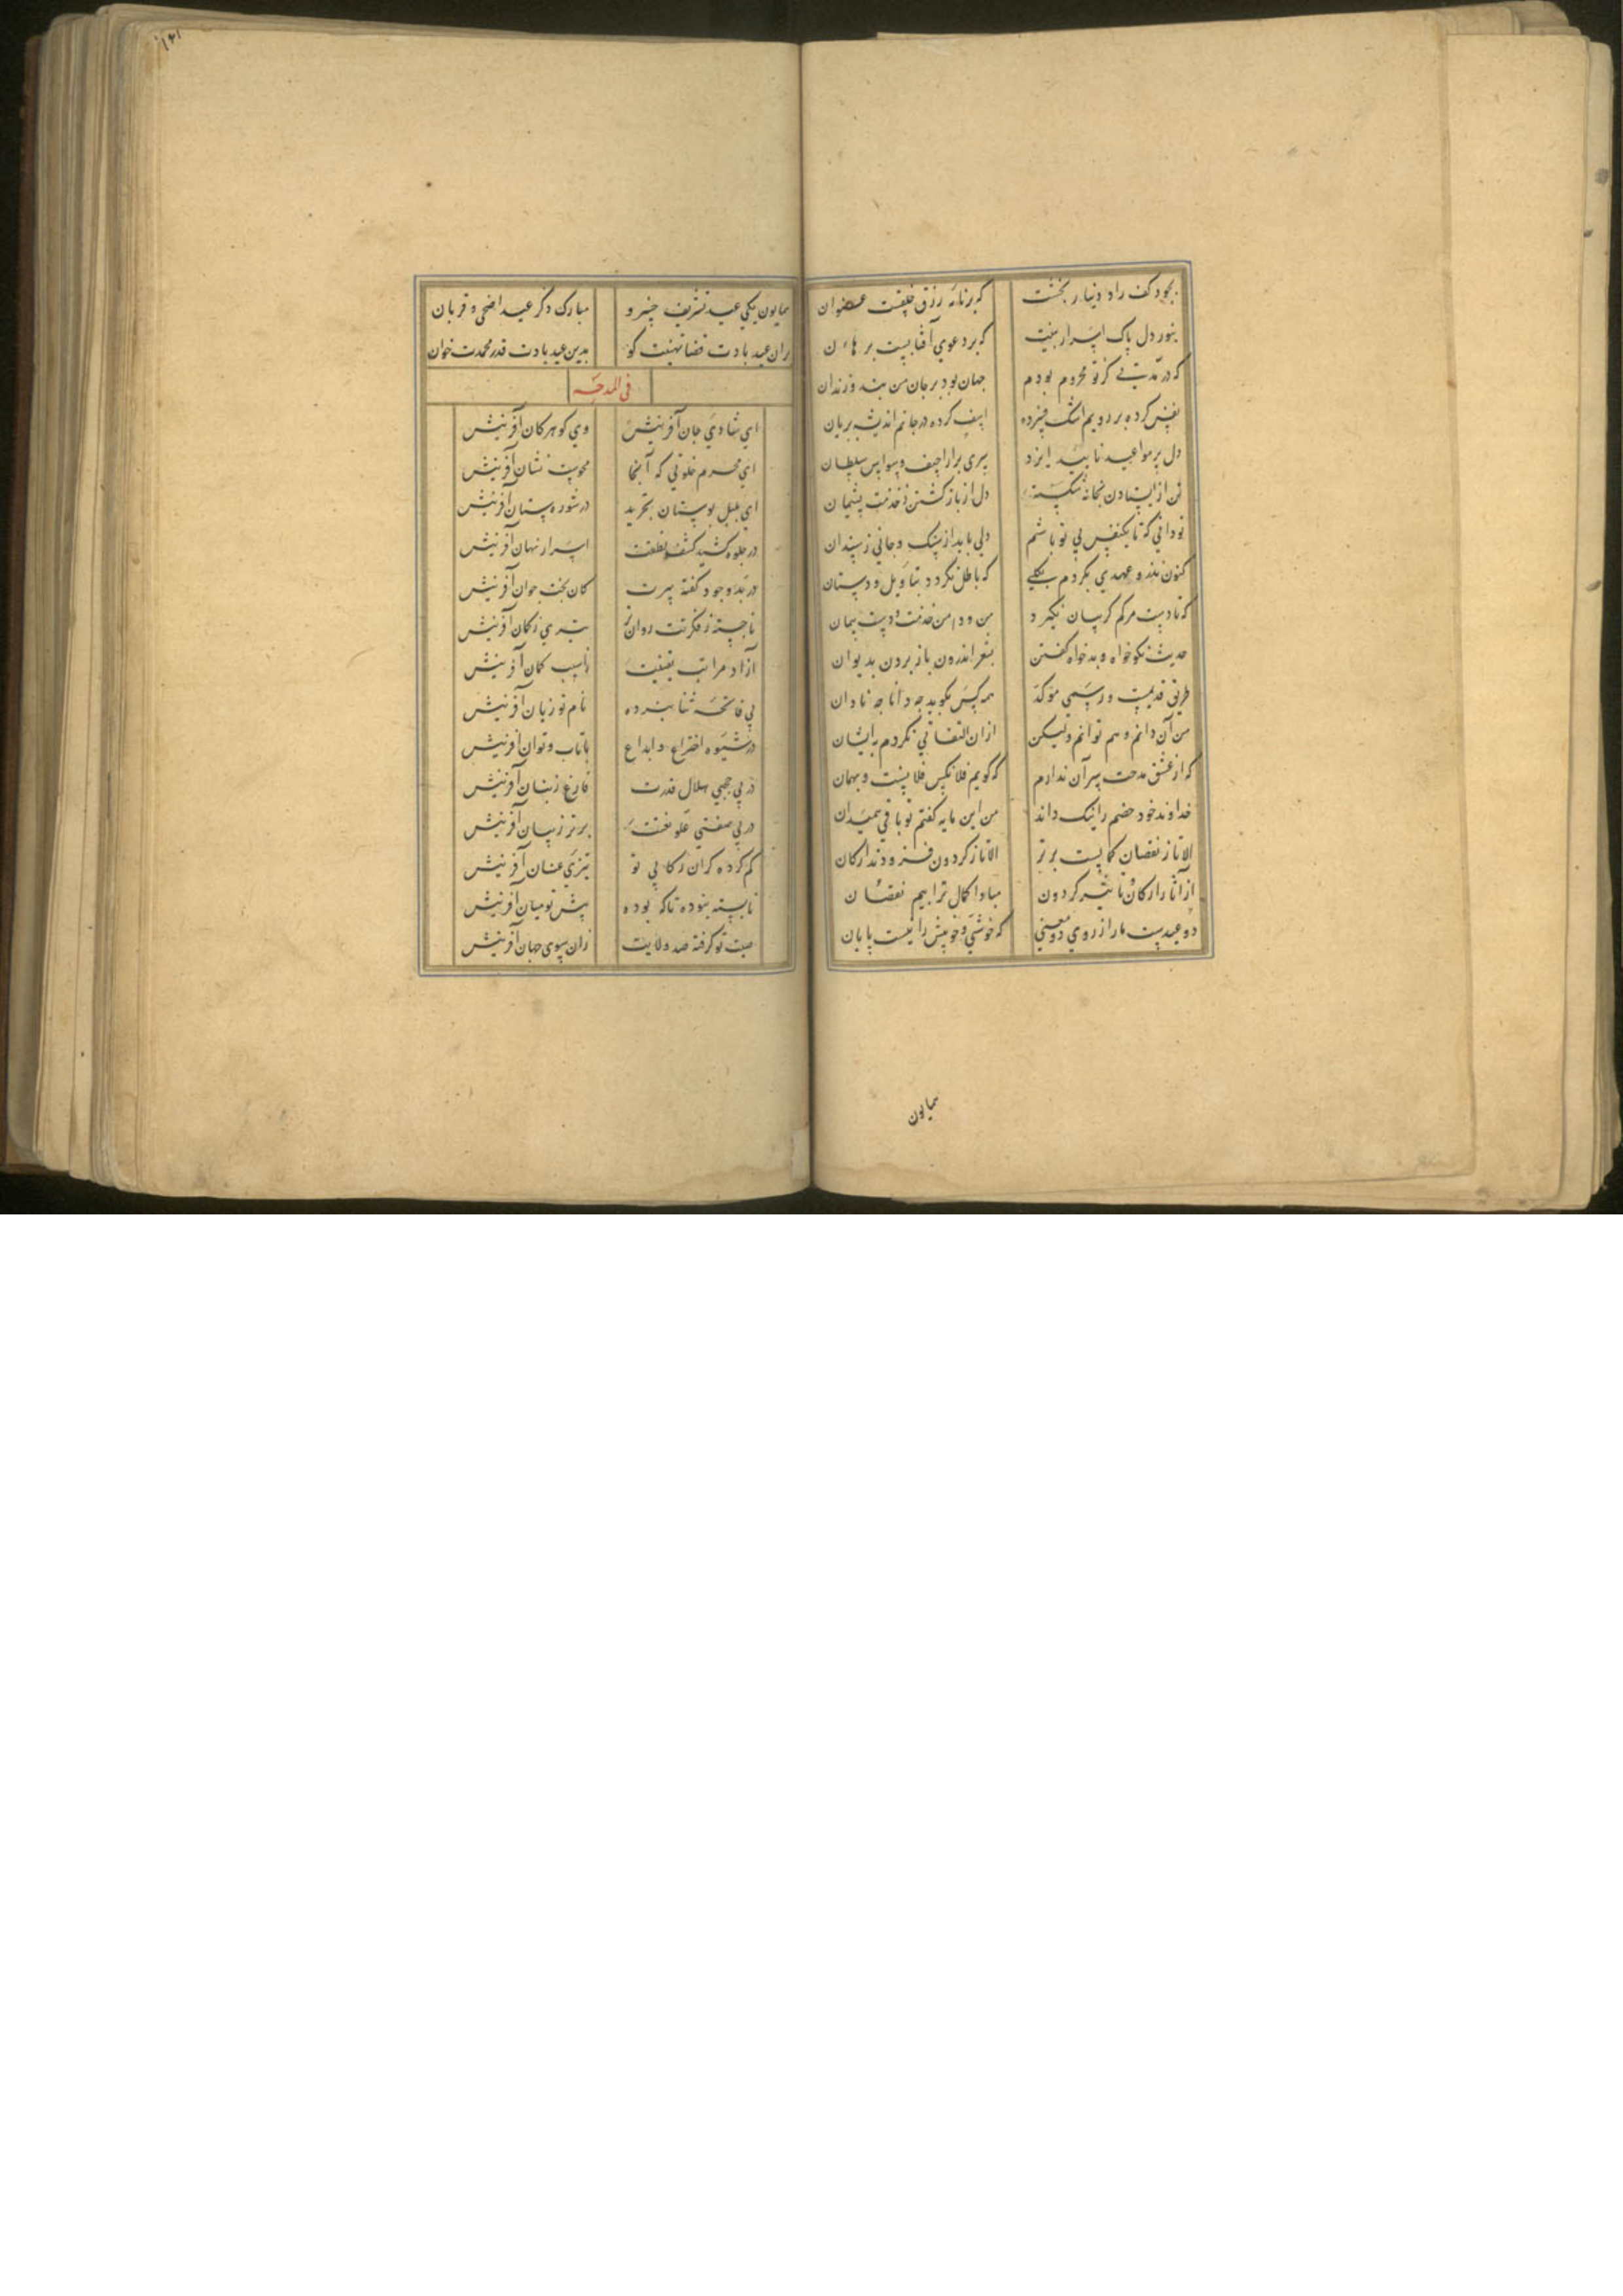 بجود کف راد دینار بخشت که برنامه رزق خلقست عنوان
بنور دل پاک اسرار بینت که بر دعوی آفتابیست برهان
که در مدتی کز تو محروم بودم جهان بود بر جان من بند و زندان
نفس کرده بر رویم اشک فسرده اسف کرده در جانم اندیشه بریان
دل پر مواعید تایید ایزد سری پر اراجیف وسواس سلطان
تن از ایستادن بخانه شکسته دل از باز گشتن ز خدمت پشیمان
تو دانی که تا یکنفس بی تو باشم دلی باید از سنک و جانی ز سندان
کنون نذر و عهدی بکردم که باطل نکردد بتاویل و دستان
که تا دست مرکم کریبان نکیرد من و دامن خدمت و دست پیمان
حدیث نکو خواه و بدخواه کفتن بشعر اندرون باز بردن بدیوان
طریق قدیمست و رسمی موکد همه کس بکوید چه دانا چه نادان
من آن دانم و هم توانم ولیکن ازان التفاتی نکردم بایشان
که از عشق مدحت سر آن ندارم که کویم فلانکس فلانست و بهمان
خداوند خود خصم را نیک داند من این مایه کفتم تو باقی همیدان
الا تا ز نقصان کمالست برتر الا تا ز کردون فرودند ارکان
از آثار ارکان تاثیر کردون مبادا کمال ترا بیم نقصان
دو عیدست ما را ز روی دو معنی که خوشی و خوبیش را نیست پایان
همایون
همایون یکی عید تشریف خسرو مبارک دکر عید اضحی و قربان
بران عید بادت قضا تهنیت کو بدین عید بادت قدر محمدت خوان
فی المدحه
ای شادی جان آفرینش وی کوهر کان آفرینش
ای محرم خلوتی که آنجا محوست نشان آفرینش
ای بلبل بوستان تجرید در شوره ستان آفرینش
در جلوه کشید کشف نطقت اسرار نهان آفرینش
در بدو وجود کفته پیرت کان بخت جوان آفرینش
ناجسته ز فکرتت روانتر تیری ز کمان آفرینش
آزاد مراتب یقینت ز آسیب کمان آفرینش
بی فاتحه ثنا نبرده نام تو زبان آفرینش
در شیوه اختراع و ابداع با تاب و توان آفرینش
در بی جهتی هلال قدرت فارغ ز بنان آفرینش
در بی صفتی علو نعتت برتر ز بیان آفرینش
کم کرده کران رکابی تو تیزی عنان آفرینش
نابسته نبوده تا که بوده پیش تو میان آفرینش
صیت تو کرفته صد ولایت زان سوی جهان آفرینش